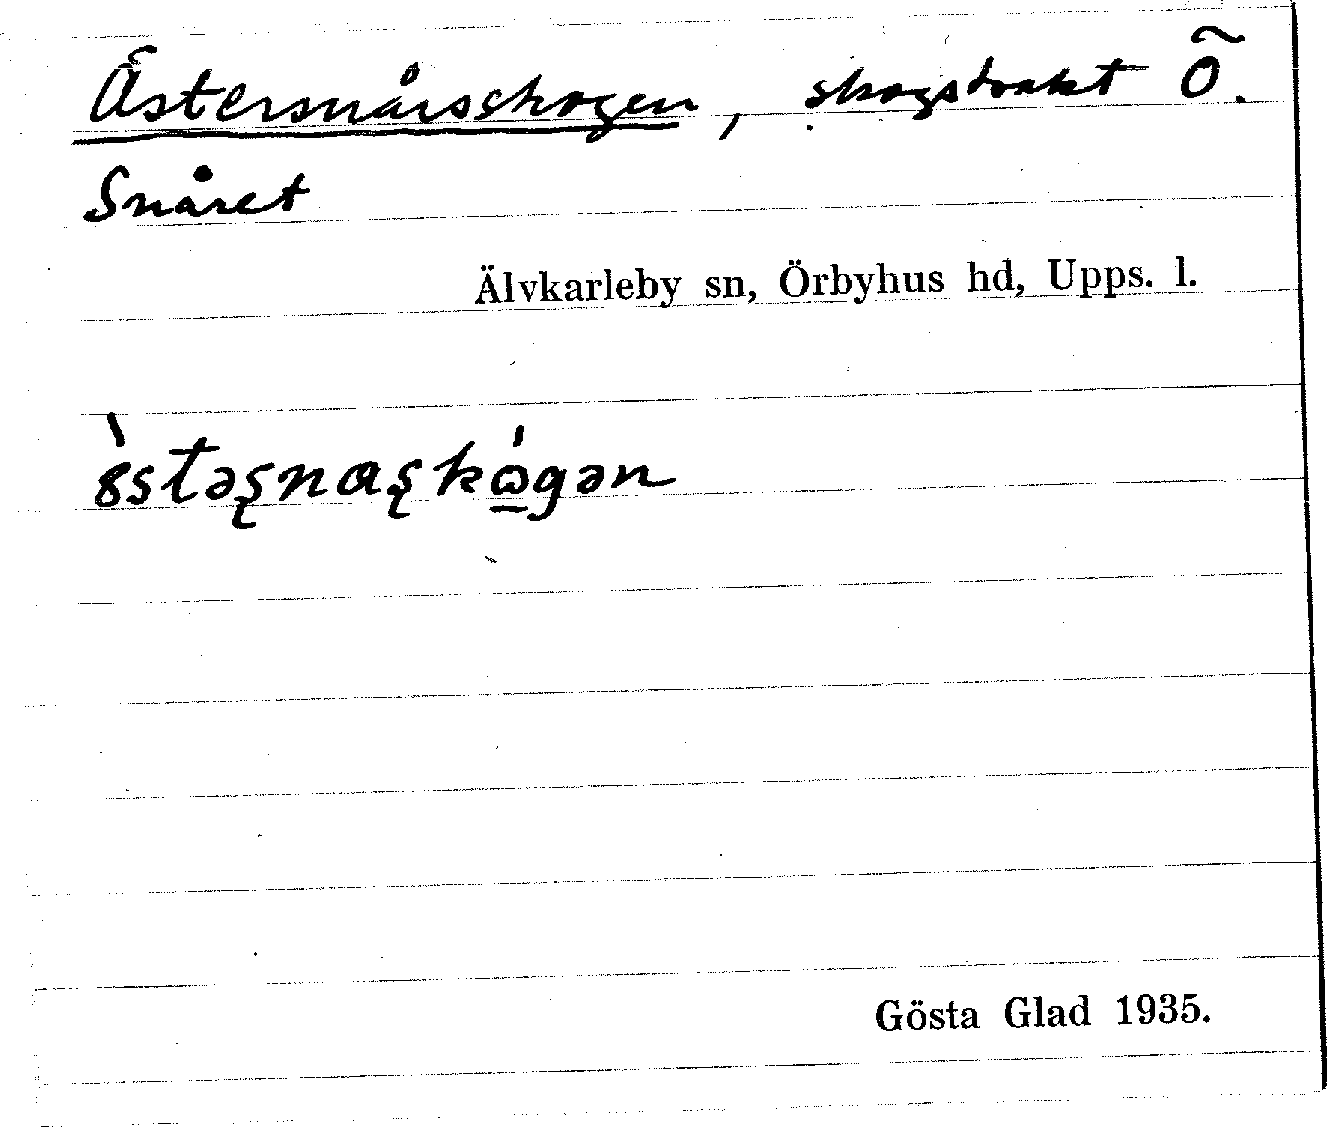 Östersnårsskogen, skogstrakt Ö.
Snåret
Älvkarleby sn, Örbyhus hd, Upps. l.
Gösta Glad 1935.